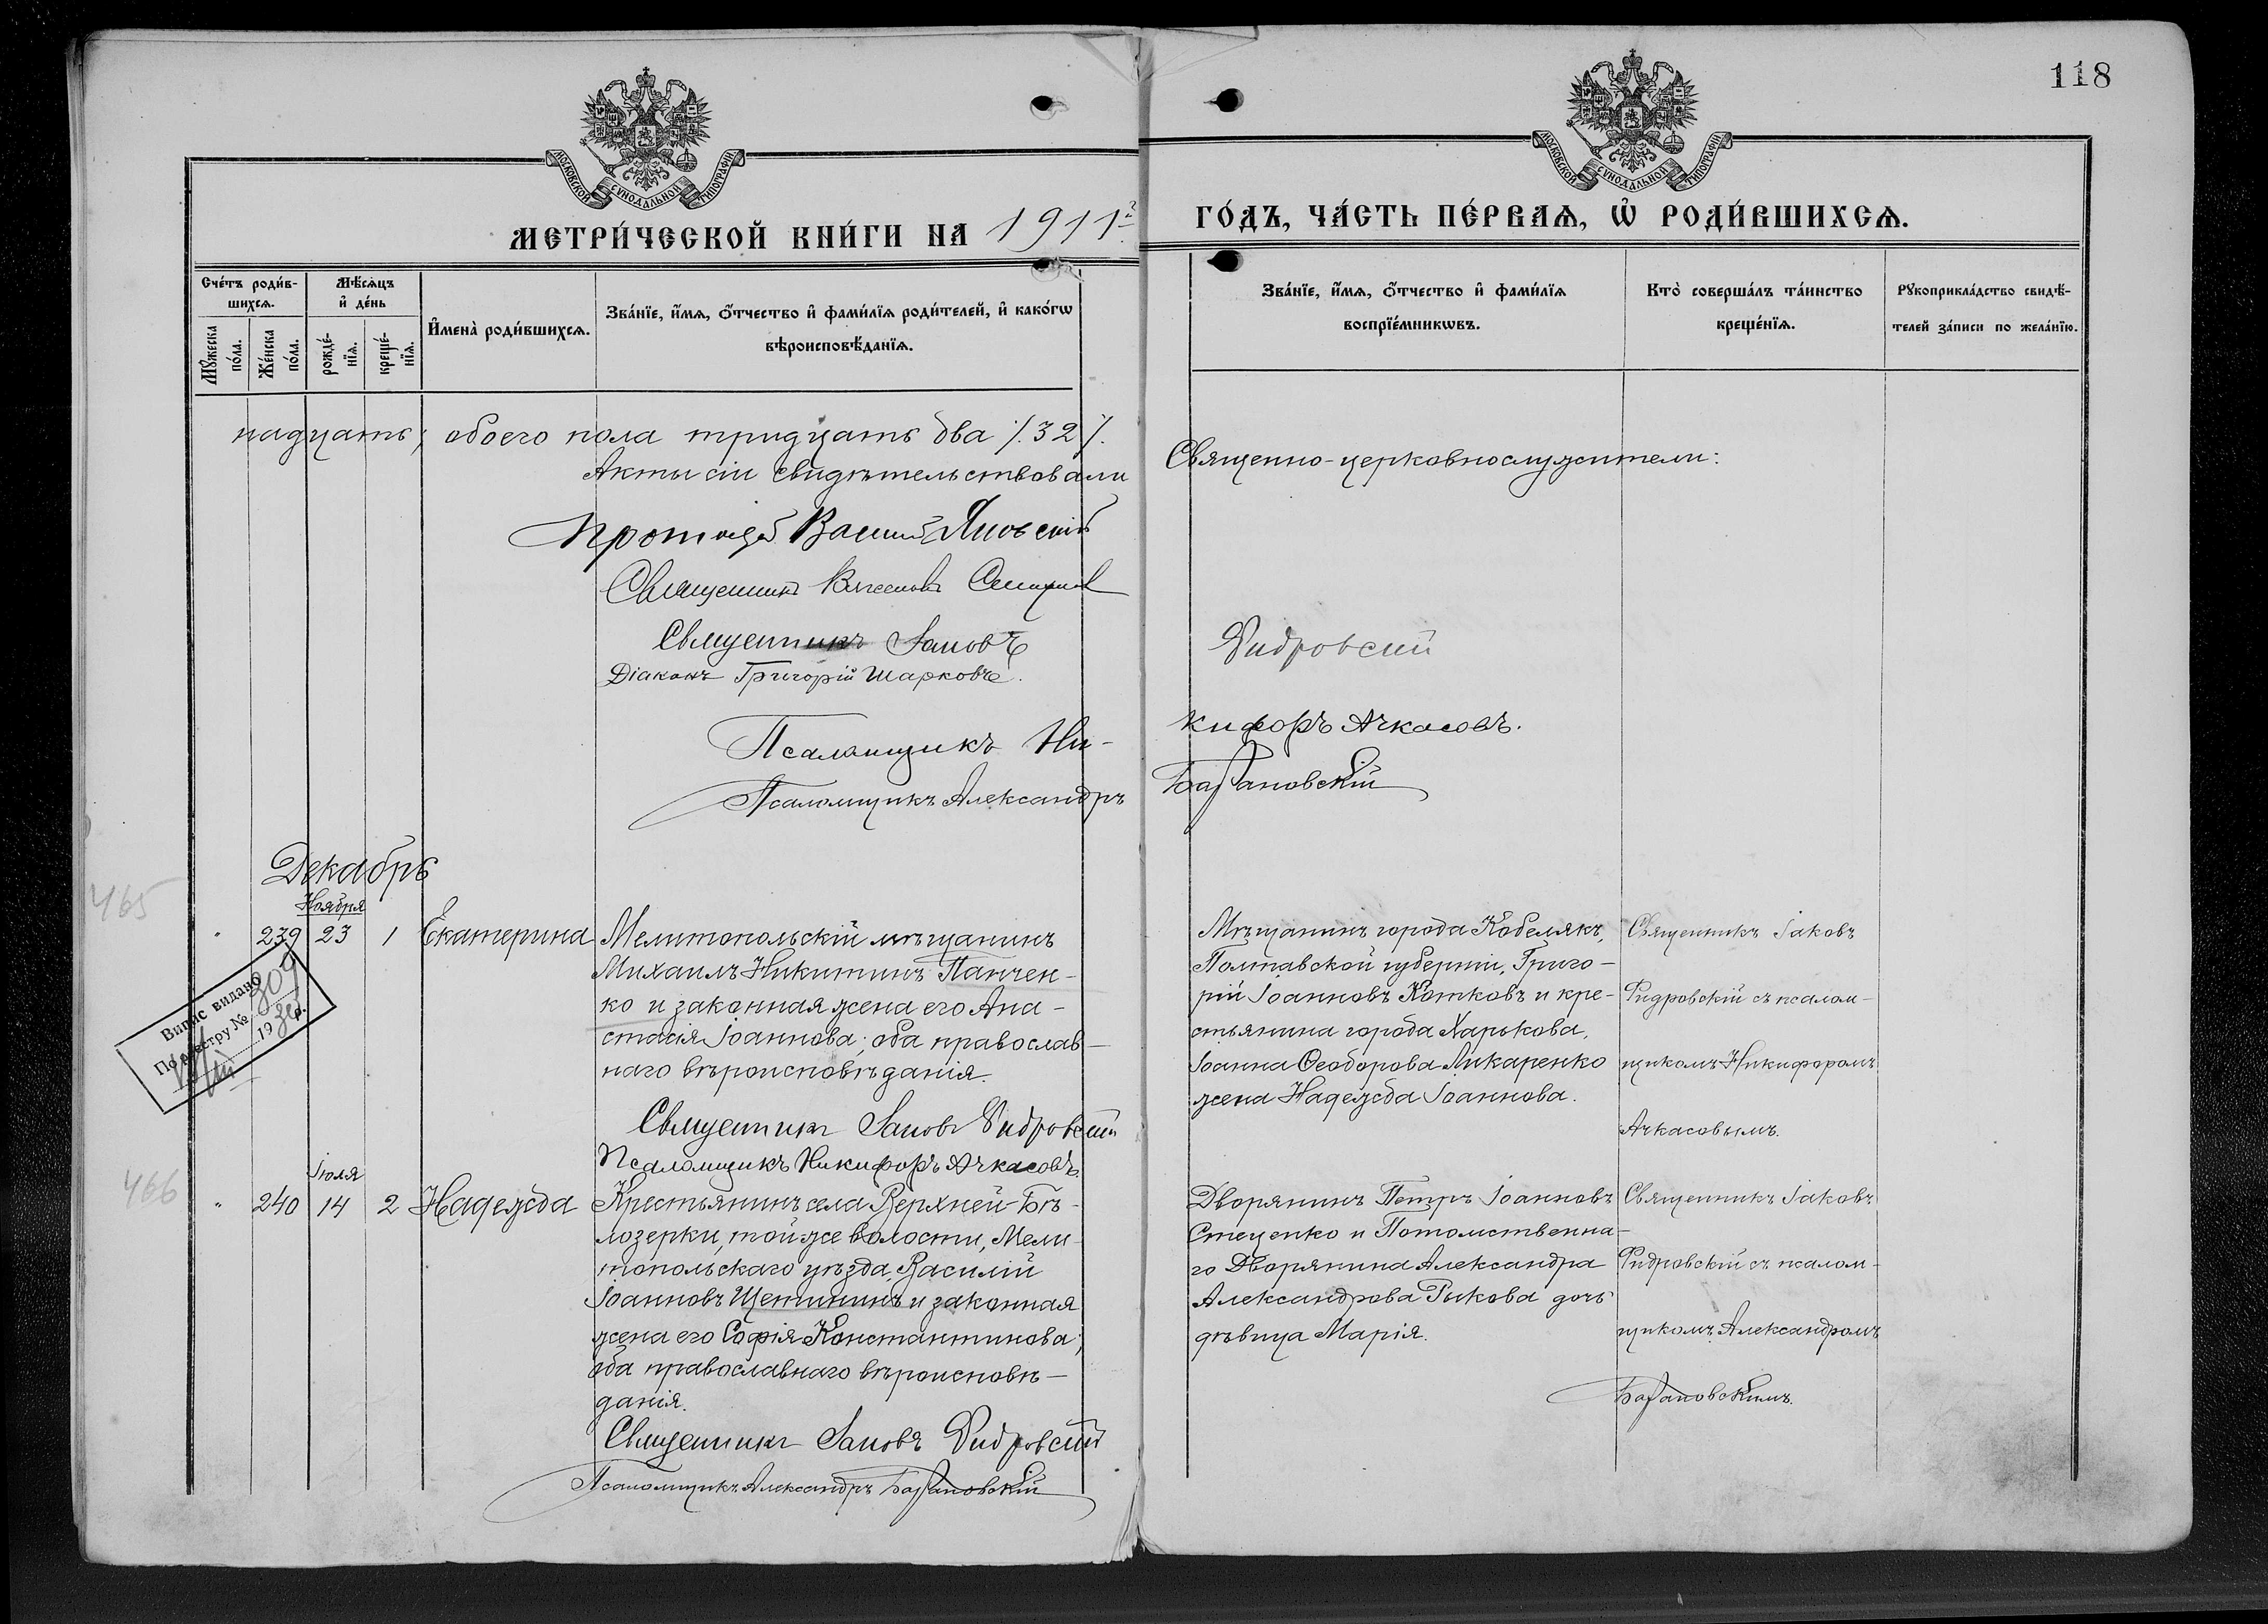 118
МОСКОВСКОЙ СѴНОДАЛЬНОЙ ТИПОГРАФІИ
МОСКОВСКОЙ СѴНОДАЛЬНОЙ ТИПОГРАФІИ
МЕТРИ́ЧЕСКОЙ КНИ́ГИ НА 1911 г.
ГО́ДЪ, ЧА́СТЬ ПЕ́РВАѦ, Ѡ҆ РОДИ́ВШИХСѦ.
Сче́тъ роди́в-
шихсѧ.
Мꙋ́жеска по́ла.
Же́нска по́ла.
Мѣ́сѧцъ
и҆ де́нь
рожде́-
нїѧ.
креще́-
нїѧ.
И҆мена̀ роди́вшихсѧ.
Зва́нїе, и҆́мѧ, ѻ҆́тчество и҆ фами́лїѧ роди́телей, и҆ како́гѡ
вѣроисповѣ́данїѧ.
Зва́нїе, и҆́мѧ, ѻ҆́тчество и҆ фами́лїѧ
воспрїе́мникѡвъ.
Кто̀ соверша́лъ та́инство
креще́нїѧ.
Рꙋкоприкла́дство свидѣ́-
телей за́писи по жела́нїю.
надцать, обоего пола тридцать два /.32/.
Акты сіи свидѣтельствовали
Священно-церковнослужители:
Священникъ
Священникъ Іаковъ
Фидровскій
Діаконъ Григорій Шарковъ.
Псаломщикъ Ни-
кифоръ Ачкасовъ.
Псаломщикъ Александръ
Барановскій
Декабрь
465
Ноября
239 23 1 Екатерина
Мелитопольскій мѣщанинъ
Михаилъ Никитинъ Панчен-
ко и законная жена его Ана-
стасія Іоаннова; оба православ-
наго вѣроисповѣданія.
Священникъ Іаковъ Фидровскій
Псаломщикъ Никифоръ Ачкасовъ.
Мѣщанинъ города Кобелякъ,
Полтавской губерніи, Григо-
рій Іоанновъ Котковъ и кре-
стьянина города Харькова,
Іоанна Ѳеодорова Ликаренко
жена Надежда Іоаннова.
Священникъ Іаковъ
Фидровскій съ псалом-
щикомъ Никифоромъ
Ачкасовымъ.
Випис видано
По реєстру № 309
19 р.
466
Іюля
240 14 2 Надежда
Крестьянинъ села Верхней-Бѣ-
лозерки, той же волости, Мели-
топольскаго уѣзда, Василій
Іоанновъ Щетининъ и законная
жена его Софія Константинова;
оба православнаго вѣроисповѣ-
данія.
Священникъ Іаковъ Фидровскій
Псаломщикъ Александръ Барановскій
Дворянинъ Петръ Іоанновъ
Стеценко и Потомственна-
го Дворянина Александра
Александрова Рыкова дочь
дѣвица Марія.
Священникъ Іаковъ
Фидровскій съ псалом-
щикомъ Александромъ
Барановскимъ.